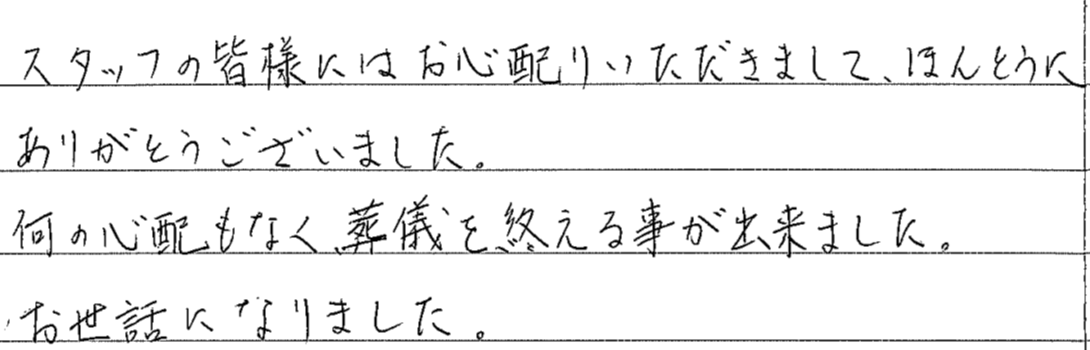 スタッフの皆様にはお心配りいただきまして、ほんとうに
ありがとうございました。
何の心配もなく葬儀を終える事が出来ました。
お世話になりました。